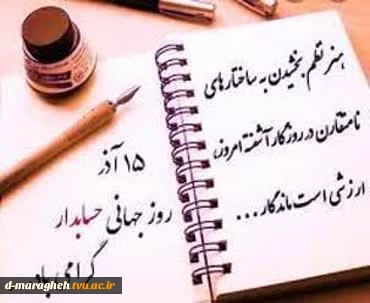 هنر نظم بخشیدن به ساختارهای
نامتقارن در روزگار آشفته امروز،
ارزشی است ماندگار ...
۱۵ آذر
روز جهانی حسابدار
گرامی باد
d-maragheh.tvu.ac.ir